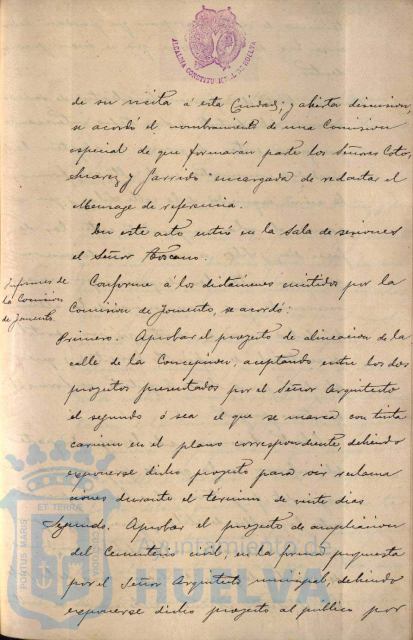 ALCALDIA CONSTITUCIONAL DE HUELVA
de su visita á esta Ciudad; y abierta discusion,
se acordó el nombramiento de una Comision
especial de que formarán parte los Señores Coto,
Suarez y Garrido encargada de redactar el
Mensage de referencia.
En este acto entró en la sala de sesiones
el Señor Toscano.
Informes de
la Comision
de Fomento.
Conforme á los dictámenes emitidos por la
Comision de Fomento, se acordó:
Primero. Aprobar el proyecto de alineacion de la
calle de la Concepcion, aceptando entre los dos
proyectos presentados por el Señor Arquitecto
el segundo ó sea el que se marca con tinta
carmin en el plano correspondiente, debiendo
exponerse dicho proyecto para oir reclama
ciones durante el término de veinte dias
Segundo. Aprobar el proyecto de ampliacion
del Cementerio civil, en la forma propuesta
por el Señor Arquitecto municipal; debiendo
exponerse dicho proyecto al público por
ET TERRÆ
PORTUS MARIS
CUSTODIA
Ayuntamiento de
HUELVA